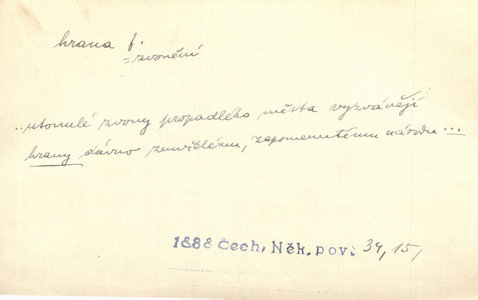 hrana f.
= zvonění
..utonulé zvony propadlého města vyzvánějí
hrany dávno zemřelému, zapomenutému národu...
1888 Čech, Něk. pov. 34, 15,